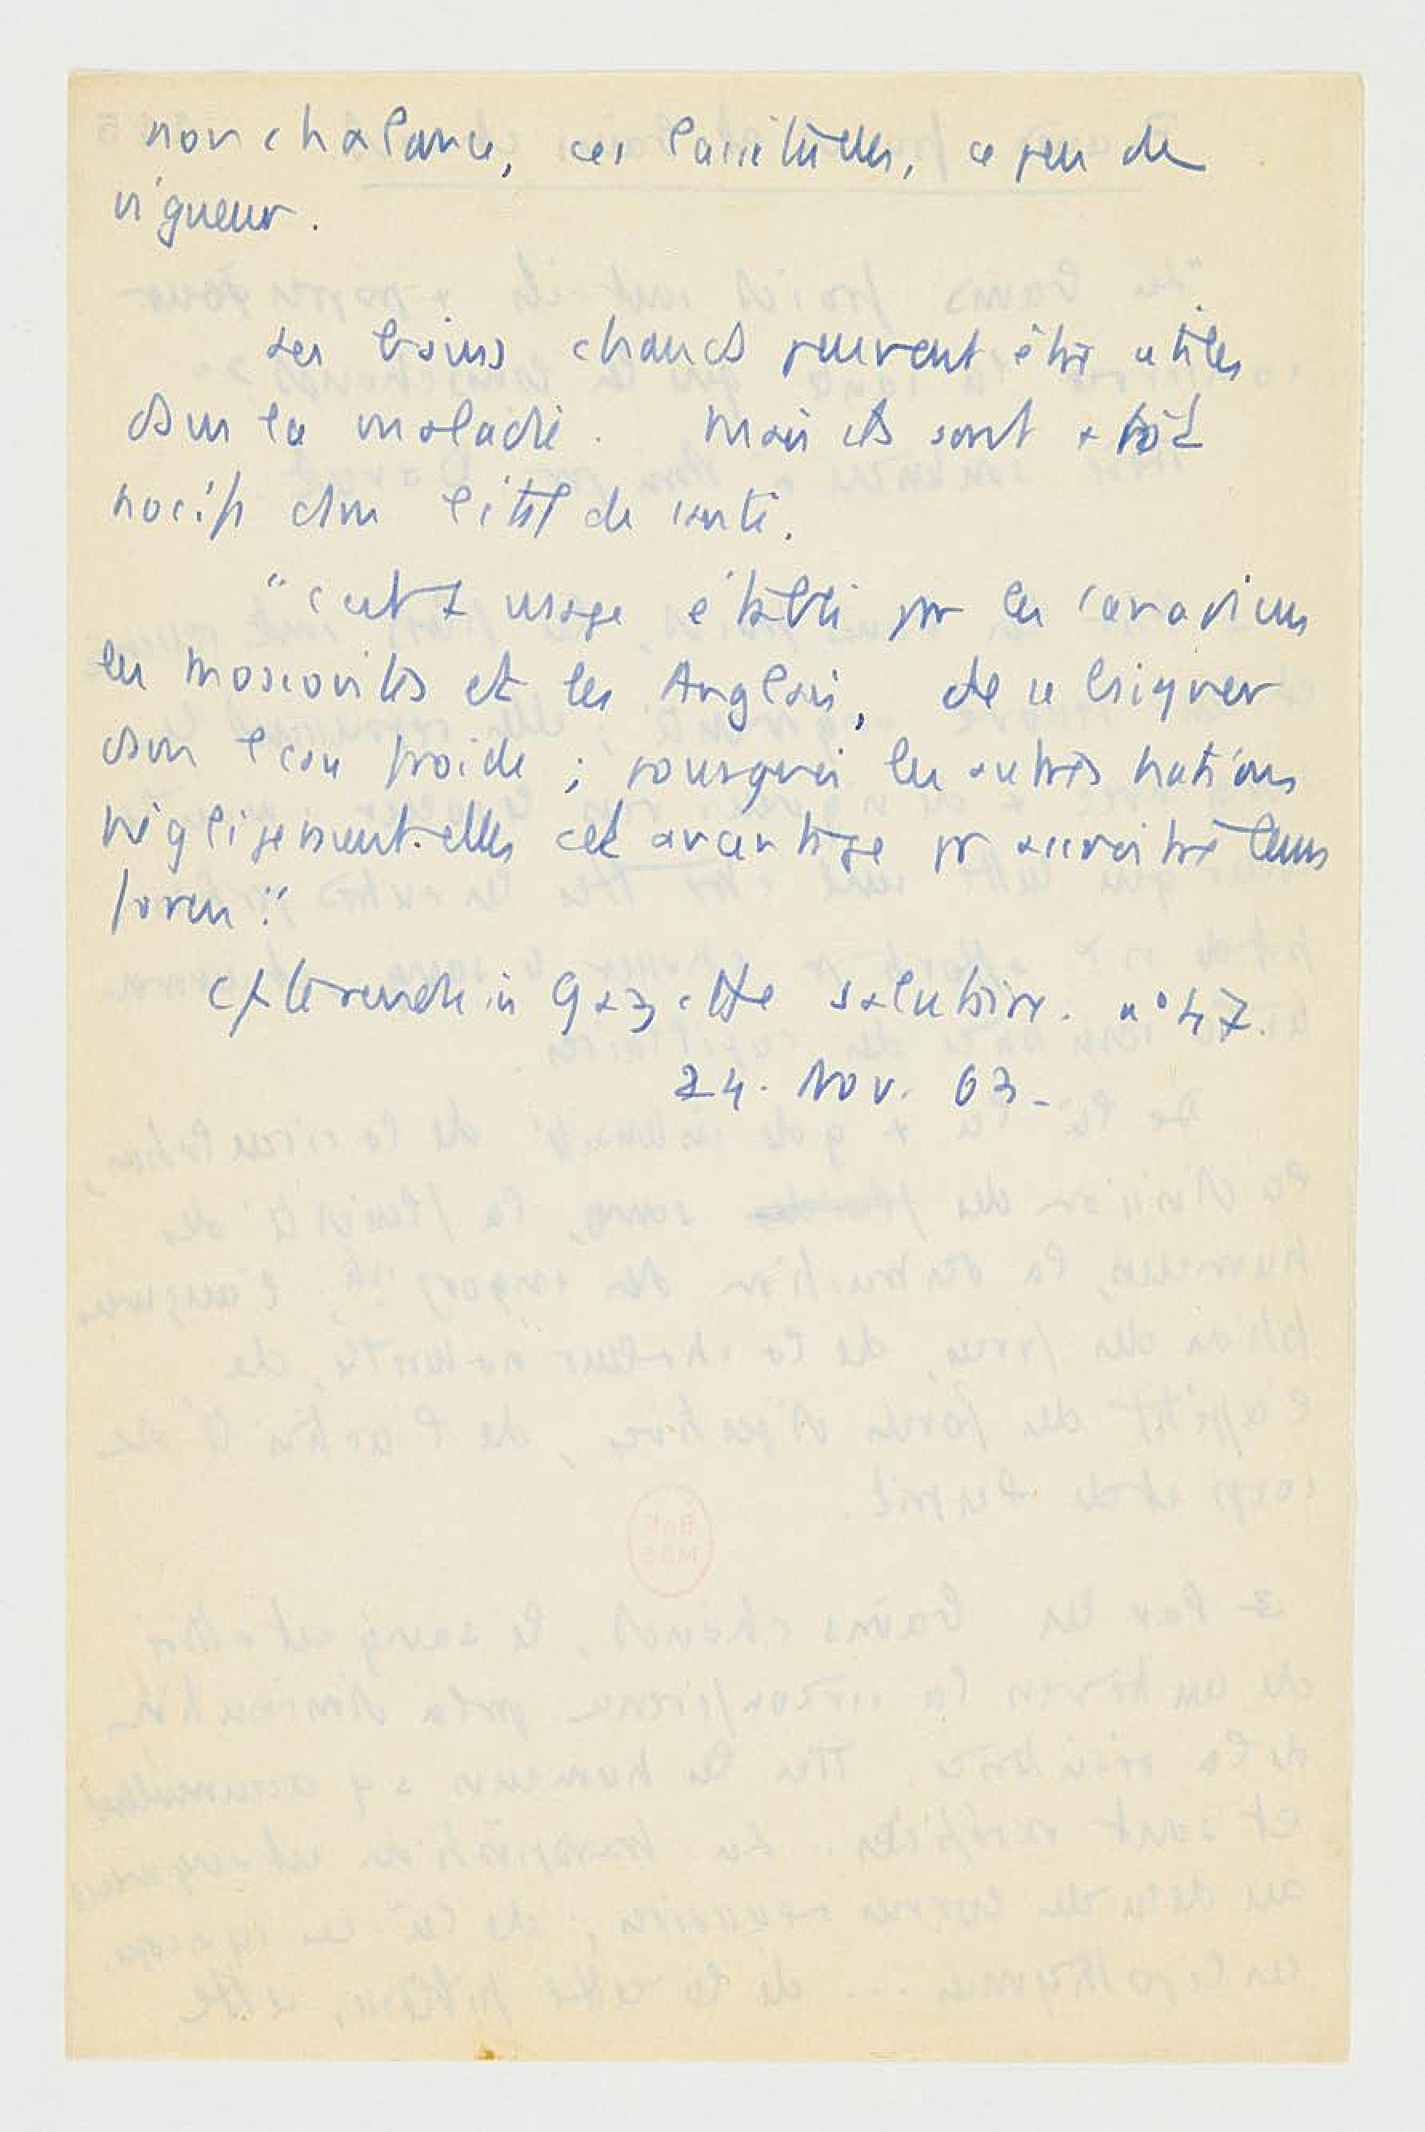 nonchalance, ces lassitudes, ce peu de
vigueur.
Les bains chauds peuvent être utiles
dans la maladie. Mais ils sont + tôt
nocifs dans l'état de santé.
"C'est usage établi par les Canadiens
les Moscovites et les Anglais, de se baigner
dans l'eau froide ; pourquoi les autres nations
négligeraient-elles cet avantage pr accroître leurs
forces."
in Gazette salutaire. n° 47.
24. Nov. 63.
BnF
MSS